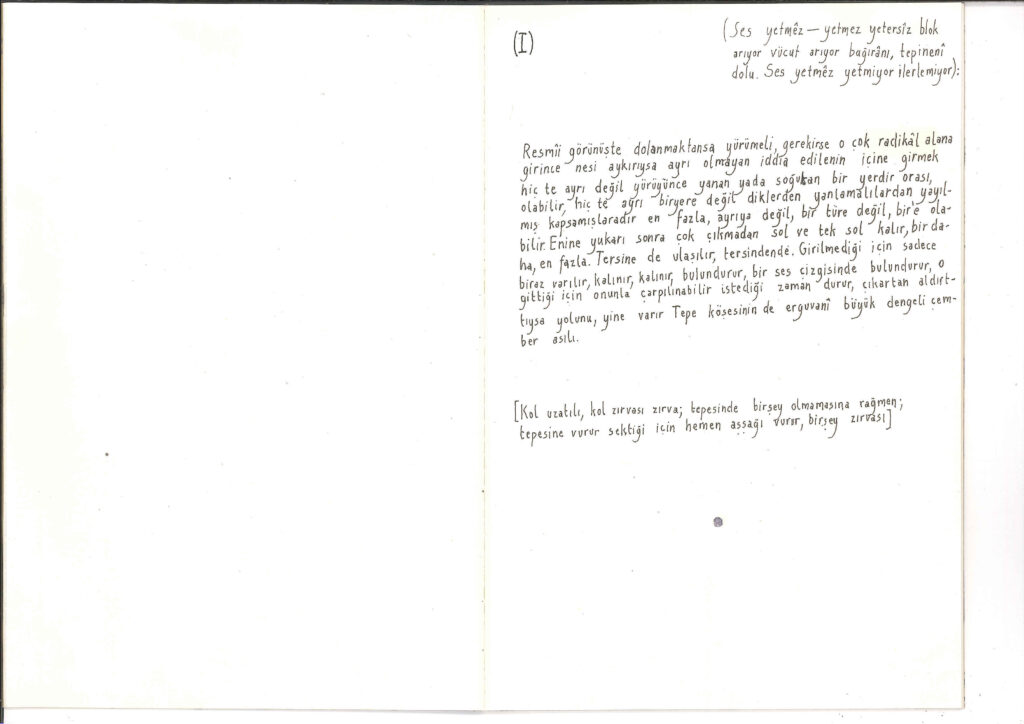 (I)
(Ses yetmêz — yetmez yetersîz blok
arıyor vücut arıyor bağırânı, tepinenî
dolu. Ses yetmêz yetmiyor ilerlemiyor):
Resmîi görünüşte dolanmaktansa yürümeli, gerekirse o çok radikâl alana
girince nesi aykırıysa ayrı olmayan iddia edilenin içine girmek
hiç te ayrı değil yürüyünce yanan yada soğukan bir yerdir orası,
olabilir, hiç te ayrı biryere değil diklerden yanlamalılardan yayıl-
mış kapsamışlaradır en fazla, ayrıya değil, bir türe değil, bir'e ola-
bilir. Enine yukarı sonra çok çıkmadan sol ve tek sol kalır, bir da-
ha, en fazla. Tersine de ulaşılır, tersindende. Girilmediği için sadece
biraz varılır, kalınır, kalınır, bulundurur, bir ses çizgisinde bulundurur, o
gittiği için onunla çarpılınabilir istediği zaman durur, çıkartan aldırt-
tıysa yolunu, yine varır Tepe köşesinin de erguvanî büyük dengeli çem-
ber asılı.
[Kol uzatılı, kol zırvası zırva; tepesinde birşey olmamasına rağmen;
tepesine vurur sektiği için hemen aşşağı vurur, birşey zırvası]